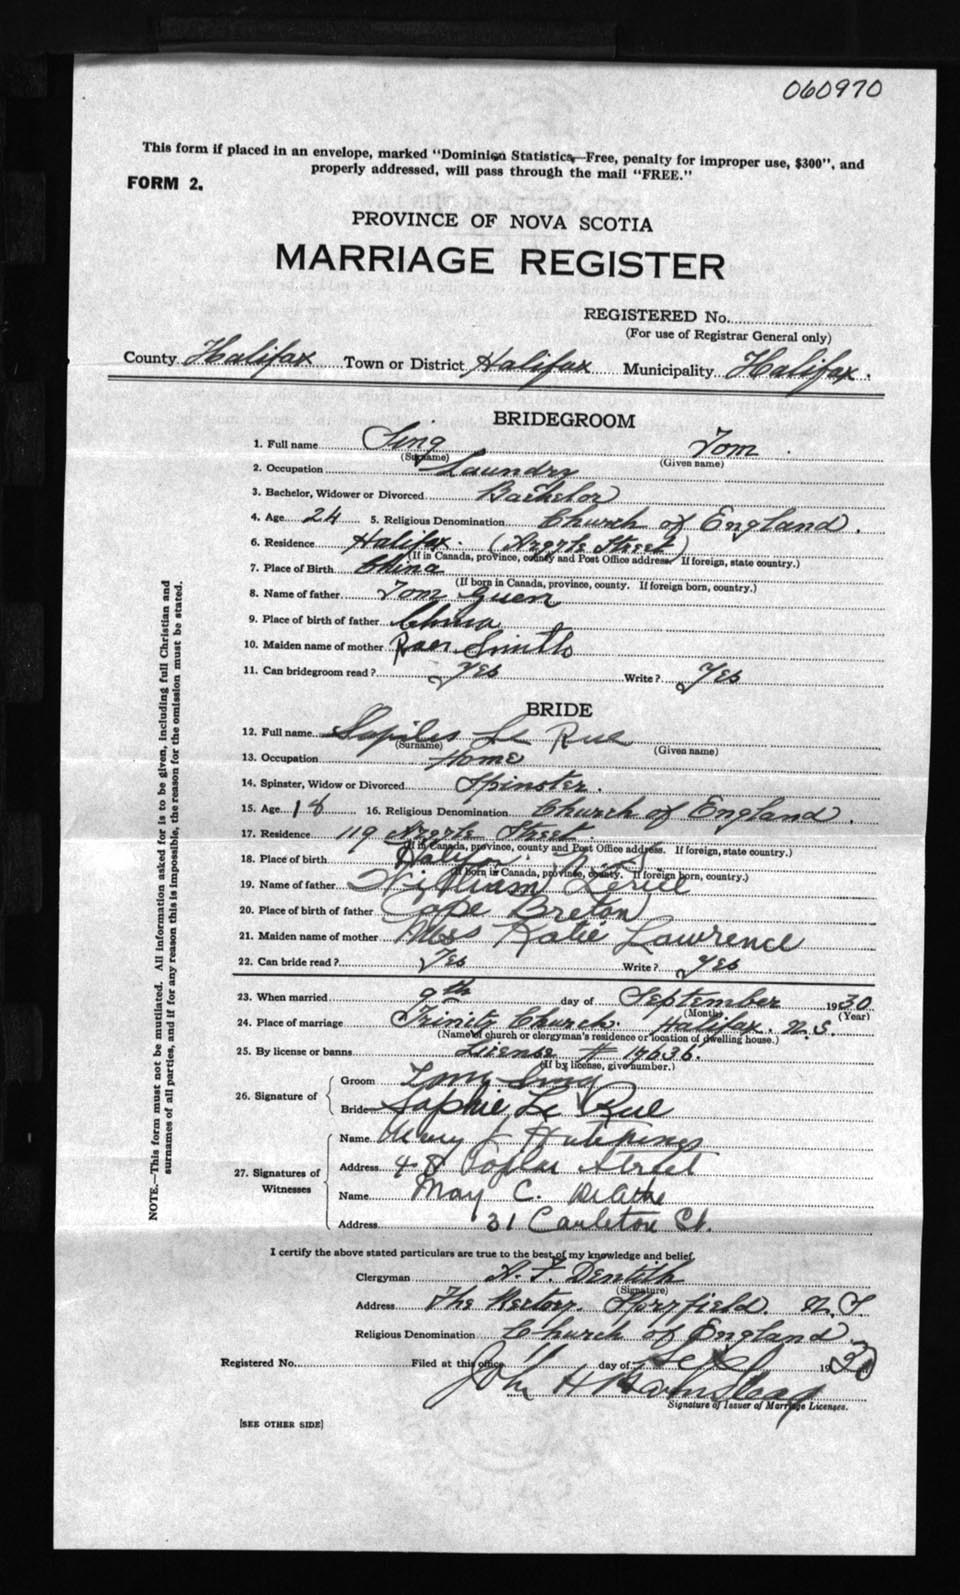 060970
This form if placed in an envelope, marked "Dominion Statistics—Free, penalty for improper use, $300", and
properly addressed, will pass through the mail "FREE."
FORM 2.
PROVINCE OF NOVA SCOTIA
MARRIAGE REGISTER
REGISTERED No.
(For use of Registrar General only)
County Halifax Town or District Halifax Municipality Halifax.
BRIDEGROOM
1. Full name Sing Tom
(Surname) (Given name)
2. Occupation Laundry
3. Bachelor, Widower or Divorced Bachelor
4. Age 24 5. Religious Denomination Church of England.
6. Residence Halifax. (Argyle Street)
(If in Canada, province, county and Post Office address. If foreign, state country.)
7. Place of Birth China
(If born in Canada, province, county. If foreign born, country.)
8. Name of father Tom Guen
9. Place of birth of father China
10. Maiden name of mother Smith
11. Can bridegroom read? Yes Write? Yes
BRIDE
12. Full name Le Rue
(Surname) (Given name)
13. Occupation Home
14. Spinster, Widow or Divorced Spinster.
15. Age 18 16. Religious Denomination Church of England.
17. Residence 119 Argyle Street.
(If in Canada, province, county and Post Office address. If foreign, state country.)
18. Place of birth Halifax.
(If born in Canada, province, county. If foreign born, country.)
19. Name of father William
20. Place of birth of father Cape Breton
21. Maiden name of mother Miss Katie Lawrence
22. Can bride read? Yes Write? Yes
23. When married 9th day of September 1930
(Month) (Year)
24. Place of marriage Trinity Church. Halifax. N.S.
(Name of church or clergyman's residence or location of dwelling house.)
25. By license or banns License # 14636.
(If by license, give number.)
26. Signature of
Groom Tom Sing
Bride Sophie Le Rue
27. Signatures of Witnesses
Name Mary J Hutchings
Address Poplar Street
Name May C.
Address 31 Carleton St.
I certify the above stated particulars are true to the best of my knowledge and belief.
Clergyman A. F. Dentith
(Signature)
Address The Rectory. N.S.
Religious Denomination Church of England.
Registered No. Filed at this office 11 day of Sep 1930
John H
Signature of Issuer of Marriage Licenses.
[SEE OTHER SIDE]
NOTE.—This form must not be mutilated. All information asked for is to be given, including full Christian and
surnames of all parties, and if for any reason this is impossible, the reason for the omission must be stated.